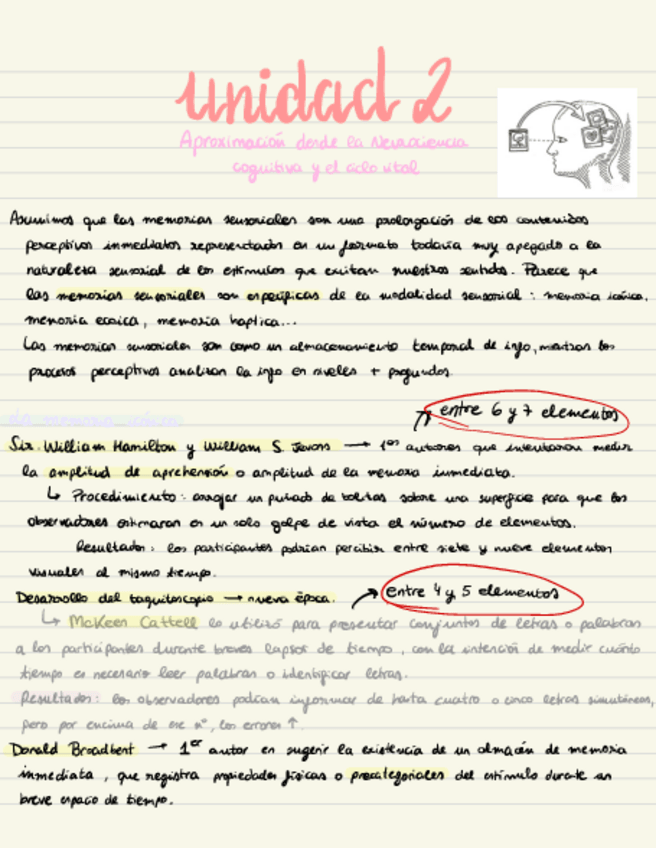 unidad 2
Aproximación desde la Neurociencia
cognitiva y el ciclo vital
Asumimos que las memorias sensoriales son una prolongación de los contenidos
perceptivos inmediatos representados en un formato todavía muy apegado a la
naturaleza sensorial de los estímulos que excitan nuestros sentidos. Parece que
las memorias sensoriales son específicas de la modalidad sensorial: memoria icónica,
memoria ecoica, memoria haptica...
Las memorias sensoriales son como un almacenamiento temporal de info, mientras los
procesos perceptivos analizan la info en niveles + profundos.
entre 6 y 7 elementos
La memoria icónica
Sir. William Hamilton y William S. Jevons → 1os autores que intentaron medir
la amplitud de aprehensión o amplitud de la memoria inmediata.
↳ Procedimiento: arrojar un puñado de bolitas sobre una superficie para que los
observadores estimaran en un solo golpe de vista el número de elementos.
Resultados: los participantes podrían percibir entre siete y nueve elementos
visuales al mismo tiempo.
Desarrollo del taquitoscopio → nueva época.
entre 4 y 5 elementos
↳ McKeen Cattell lo utilizó para presentar conjuntos de letras o palabras
a los participantes durante breves lapsos de tiempo, con la intención de medir cuánto
tiempo es necesario leer palabras o identificar letras.
Resultados: los observadores podían informar de hasta cuatro o cinco letras simultáneas,
pero por encima de ese nº, los errores ↑.
Donald Broadbent → 1er autor en sugerir la existencia de un almacén de memoria
inmediata, que registra propiedades físicas o precategoriales del estímulo durante un
breve espacio de tiempo.